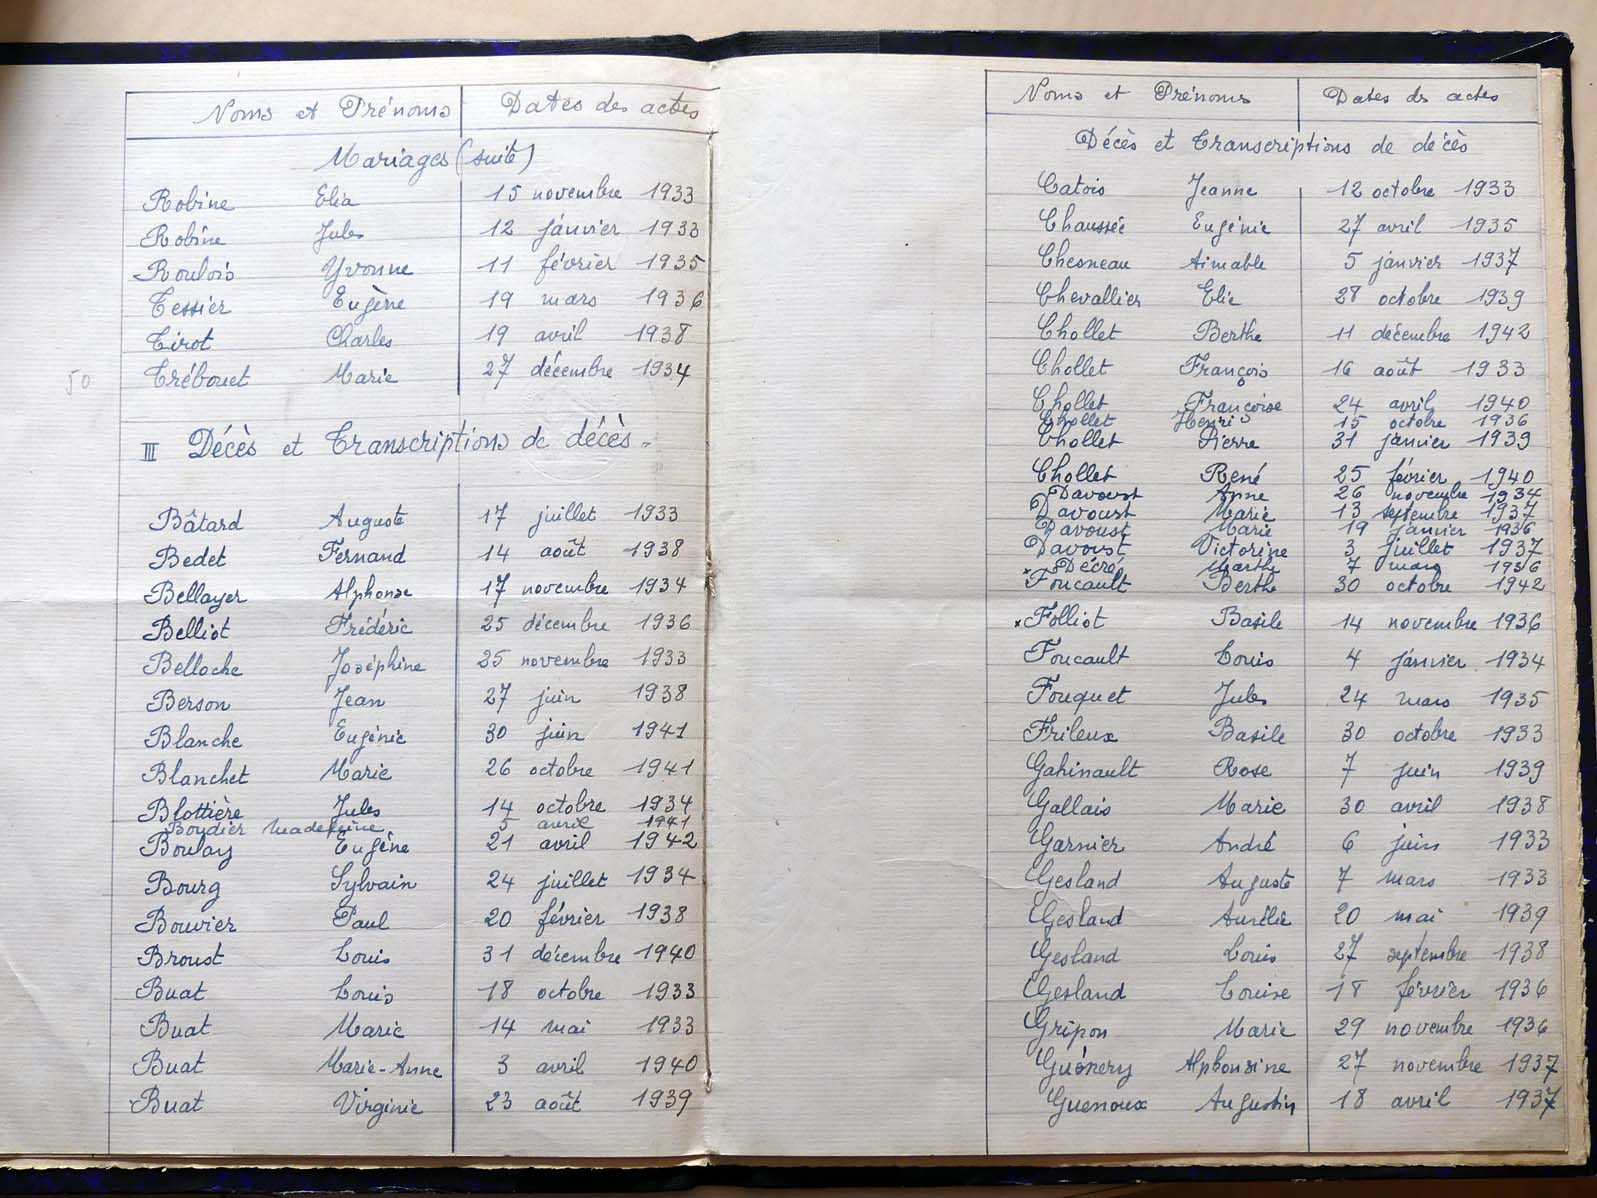 Noms et Prénoms Dates des actes
Mariages (suite)
Robine Elia 15 novembre 1933
Robine Jules 12 janvier 1933
Roulois Yvonne 11 février 1935
Tessier Eugène 19 mars 1936
Tirot Charles 19 avril 1938
50 Trébouet Marie 27 décembre 1934
III Décès et Transcriptions de décès.
Bâtard Auguste 17 juillet 1933
Bedet Fernand 14 août 1938
Bellayer Alphonse 17 novembre 1934
Belliot Frédéric 25 décembre 1936
Belloche Joséphine 25 novembre 1933
Berson Jean 27 juin 1938
Blanche Eugénie 30 juin 1941
Blanchet Marie 26 octobre 1941
Blottière Jules 14 octobre 1934
Boudier Madeleine 5 avril 1941
Boulay Eugène 21 avril 1942
Bourg Sylvain 24 juillet 1934
Bouvier Paul 20 février 1938
Broust Louis 31 décembre 1940
Buat Louis 18 octobre 1933
Buat Marie 14 mai 1933
Buat Marie-Anne 3 avril 1940
Buat Virginie 23 août 1939
Noms et Prénoms Dates des actes
Décès et Transcriptions de décès
Catois Jeanne 12 octobre 1933
Chaussée Eugénie 27 avril 1935
Chesneau Aimable 5 janvier 1937
Chevallier Elie 28 octobre 1939
Chollet Berthe 11 décembre 1942
Chollet François 16 août 1933
Chollet Françoise 24 avril 1940
Chollet Henri 15 octobre 1936
Chollet Pierre 31 janvier 1939
Chollet René 25 février 1940
Davoust Anne 26 novembre 1934
Davoust Marie 13 septembre 1937
Davoust Marie 19 janvier 1936
Davoust Victorine 3 juillet 1937
Décré Marthe 7 mars 1936
x Foucault Berthe 30 octobre 1942
x Folliot Basile 14 novembre 1936
Foucault Louis 4 janvier 1934
Fouquet Jules 24 mars 1935
Frileux Basile 30 octobre 1933
Gahinault Rose 7 juin 1939
Gallais Marie 30 avril 1938
Garnier André 6 juin 1933
Gesland Auguste 7 mars 1933
Gesland Aurélie 20 mai 1939
Gesland Louis 27 septembre 1938
Gesland Louise 18 février 1936
Gripon Marie 29 novembre 1936
Guénery Alphonsine 27 novembre 1937
Guenoux Augustin 18 avril 1937